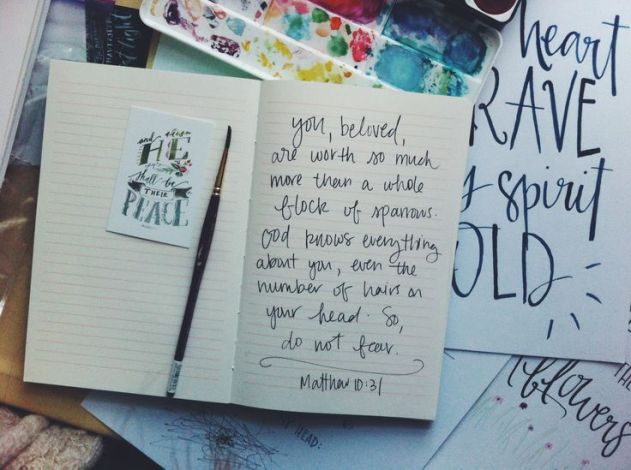 and
HE
shall be
THEIR
PEACE
you, beloved,
are worth so much
more than a whole
flock of sparrows.
God knows everything
about you, even the
number of hairs on
your head. So,
do not fear.
Matthew 10:31
heart
RAVE
spirit
OLD
HEAD:
THE
flowers